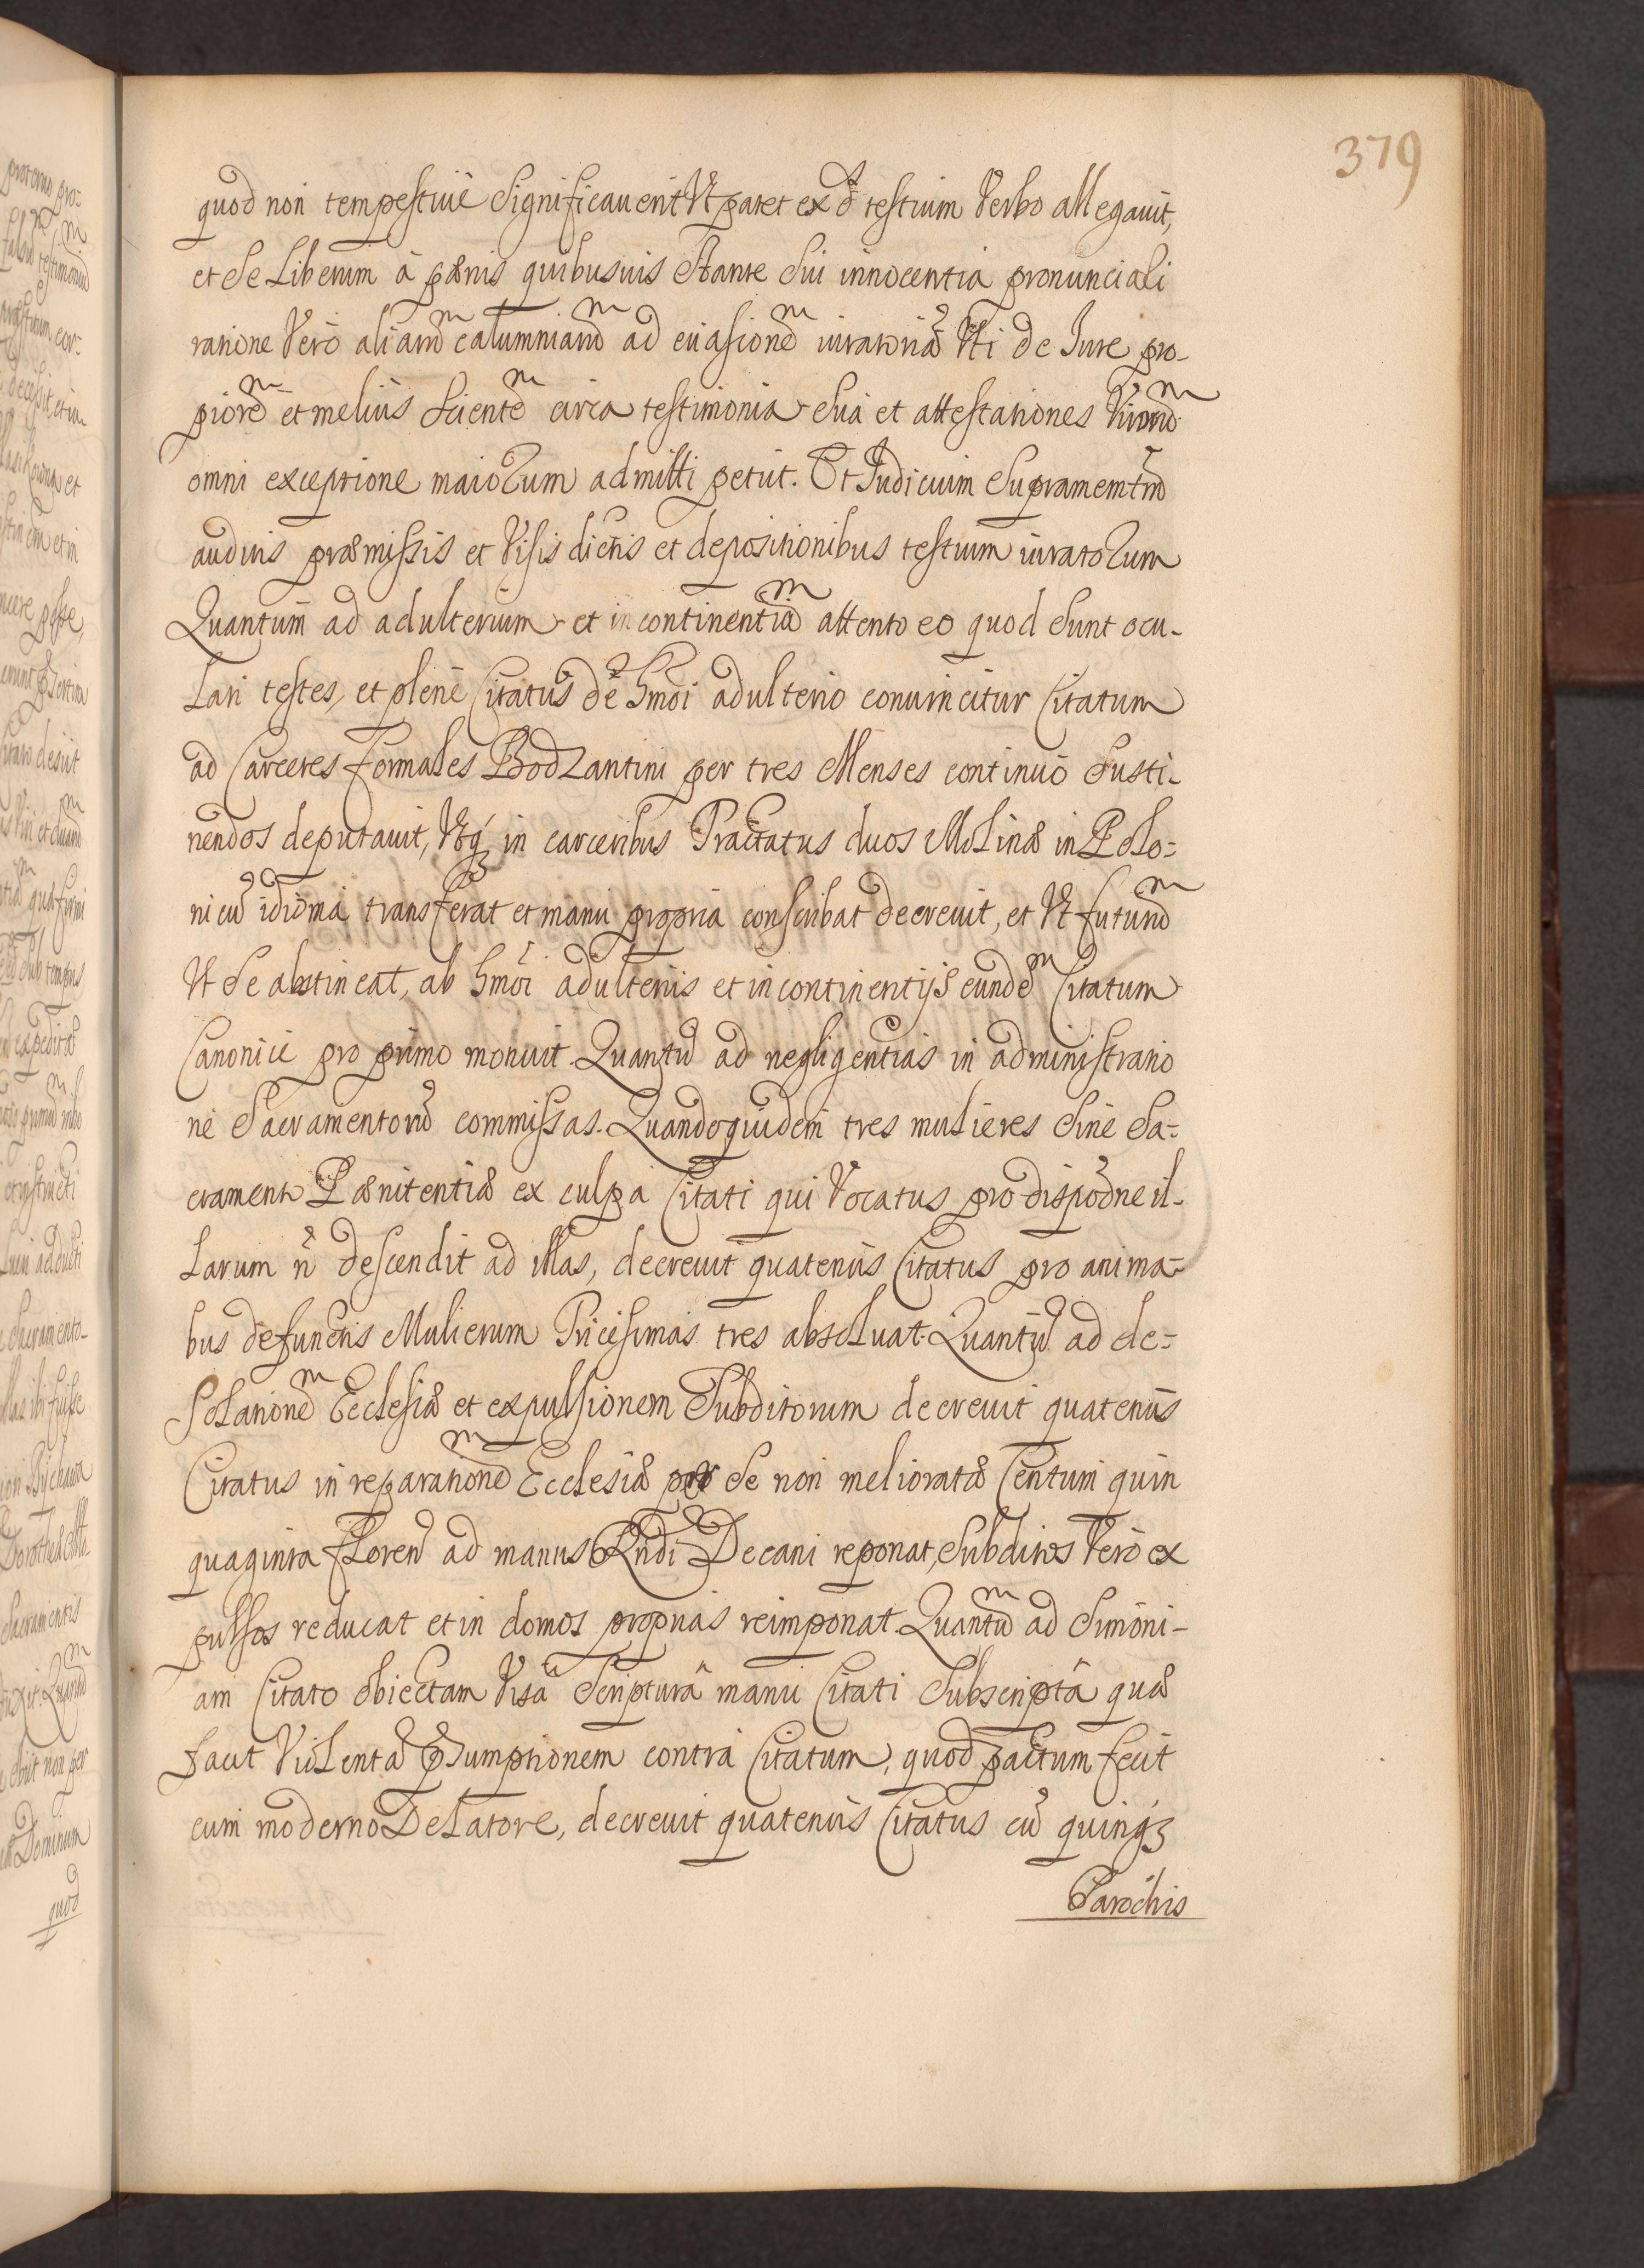 379
quod non tempestive significaverit Ut patet ex d testium Verbo allegavit,
et se Liberum à pænis quibusvis Stante sui innocentia pronunciali
ratione Verò aliam calumniam ad evasionem iuratoriã Uti de Iure pro-
piorem et melius Scientem circa testimonia sua et attestationes Virorum
omni exceptione maiorum admitti petiit. Et Iudicium Supramemtm
auditis præmissis et Visis dictis et depositionibus testium iuratorum
Quantum ad adulterium et incontinentiam attento eo quod Sunt ocu-
Lari testes, et plenè Citatus de hmoi adulterio convincitur Citatum
ad Carceres formales Bodzantini per tres Menses continuò Susti-
nendos deputavit, Utq3 in carceribus Tractatus duos Molinæ in Polo=
nicũ idioma transferat et manu propria conscribat decrevit, et Ut futurum
Ut se abstineat, ab hmoi adulteriis et incontinentijs eundem Citatum
Canonicè pro primo monuit. Quantũ ad negligentias in administratio
ne Sacramentorũ commissas. Quandoquidem tres mulieres Sine Sa=
cramento Pænitentiæ ex culpa Citati qui Vocatus pro dispoône il-
Larum ñ descendit ad illas, decrevit quatenus Citatus pro anima=
bus defunctis Mulierum Tricesimas tres absoluat. Quantũ ad de=
Solationem Ecclesiæ et expulsionem Subditorum decrevit quatenus
Citatus in reparationem Ecclesiæ per se non melioratæ Centum quin
quaginta floren ad manus Rndi Decani reponat, Subditos Verò ex
pulsos reducat et in domos proprias reimponat. Quantum ad Simoni-
am Citato obiectam Visâ Scripturâ manu Citati Subscriptâ quæ
facit Violentã præsumptionem contra Citatum, quod pactum fecit
cum moderno Delatore, decrevit quatenus Citatus cũ quinq3
Parochis